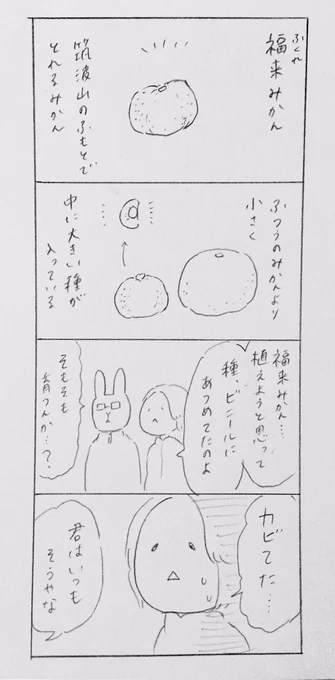 ふくれ
福来みかん
筑波山のふもとで
とれるみかん
ふつうのみかんより
小さく
中に大きい種が
入っている
福来みかん…
植えようと思って
種、ビニールに
あつめてたのよ
そもそも
育つんか…?
カビてた…
君はいつも
そうやな